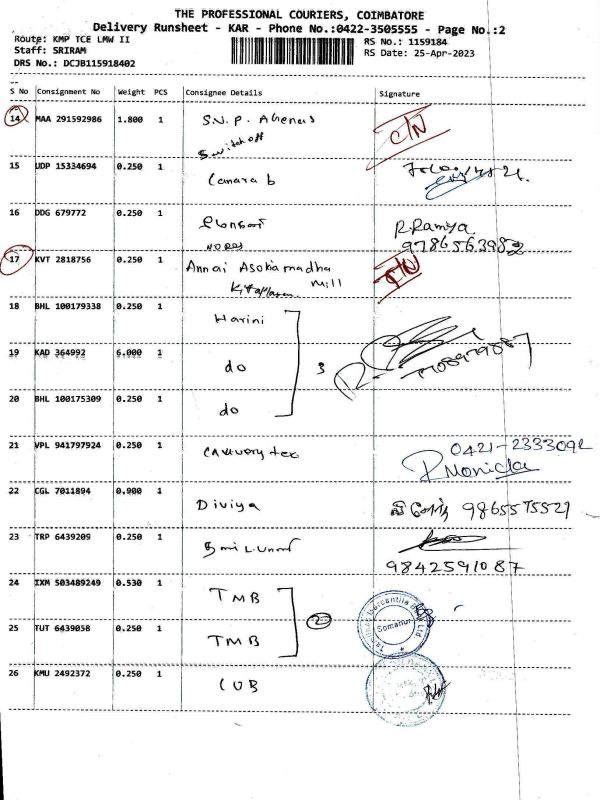 THE PROFESSIONAL COURIERS, COIMBATORE
Delivery Runsheet - KAR - Phone No.:0422-3505555 - Page No.:2
Route: KMP TCE LMW II RS No.: 1159184
Staff: SRIRAM RS Date: 25-Apr-2023
DRS No.: DCJB115918402
S No Consignment No Weight PCS Consignee Details Signature
14 MAA 291592986 1.800 1 S.N.P. C/N
Switch off
15 UDP 15334694 0.250 1 Canara b
16 DDG 679772 0.250 1 R.Ramya
9786563982
17 KVT 2818756 0.250 1 Annai Asokamadha
Mill
18 BHL 100179338 0.250 1 Harini
19 KAD 364992 6.000 1 do 3
20 BHL 100175309 0.250 1 do
21 VPL 941797924 0.250 1 0421-2333092
Monicka
22 CGL 7011894 0.900 1 Diviya 9865575521
23 TRP 6439209 0.250 1
9842591087
24 IXM 503489249 0.530 1 TMB
25 TUT 6439058 0.250 1 TMB 2 Somanur
26 KMU 2492372 0.250 1 CUB